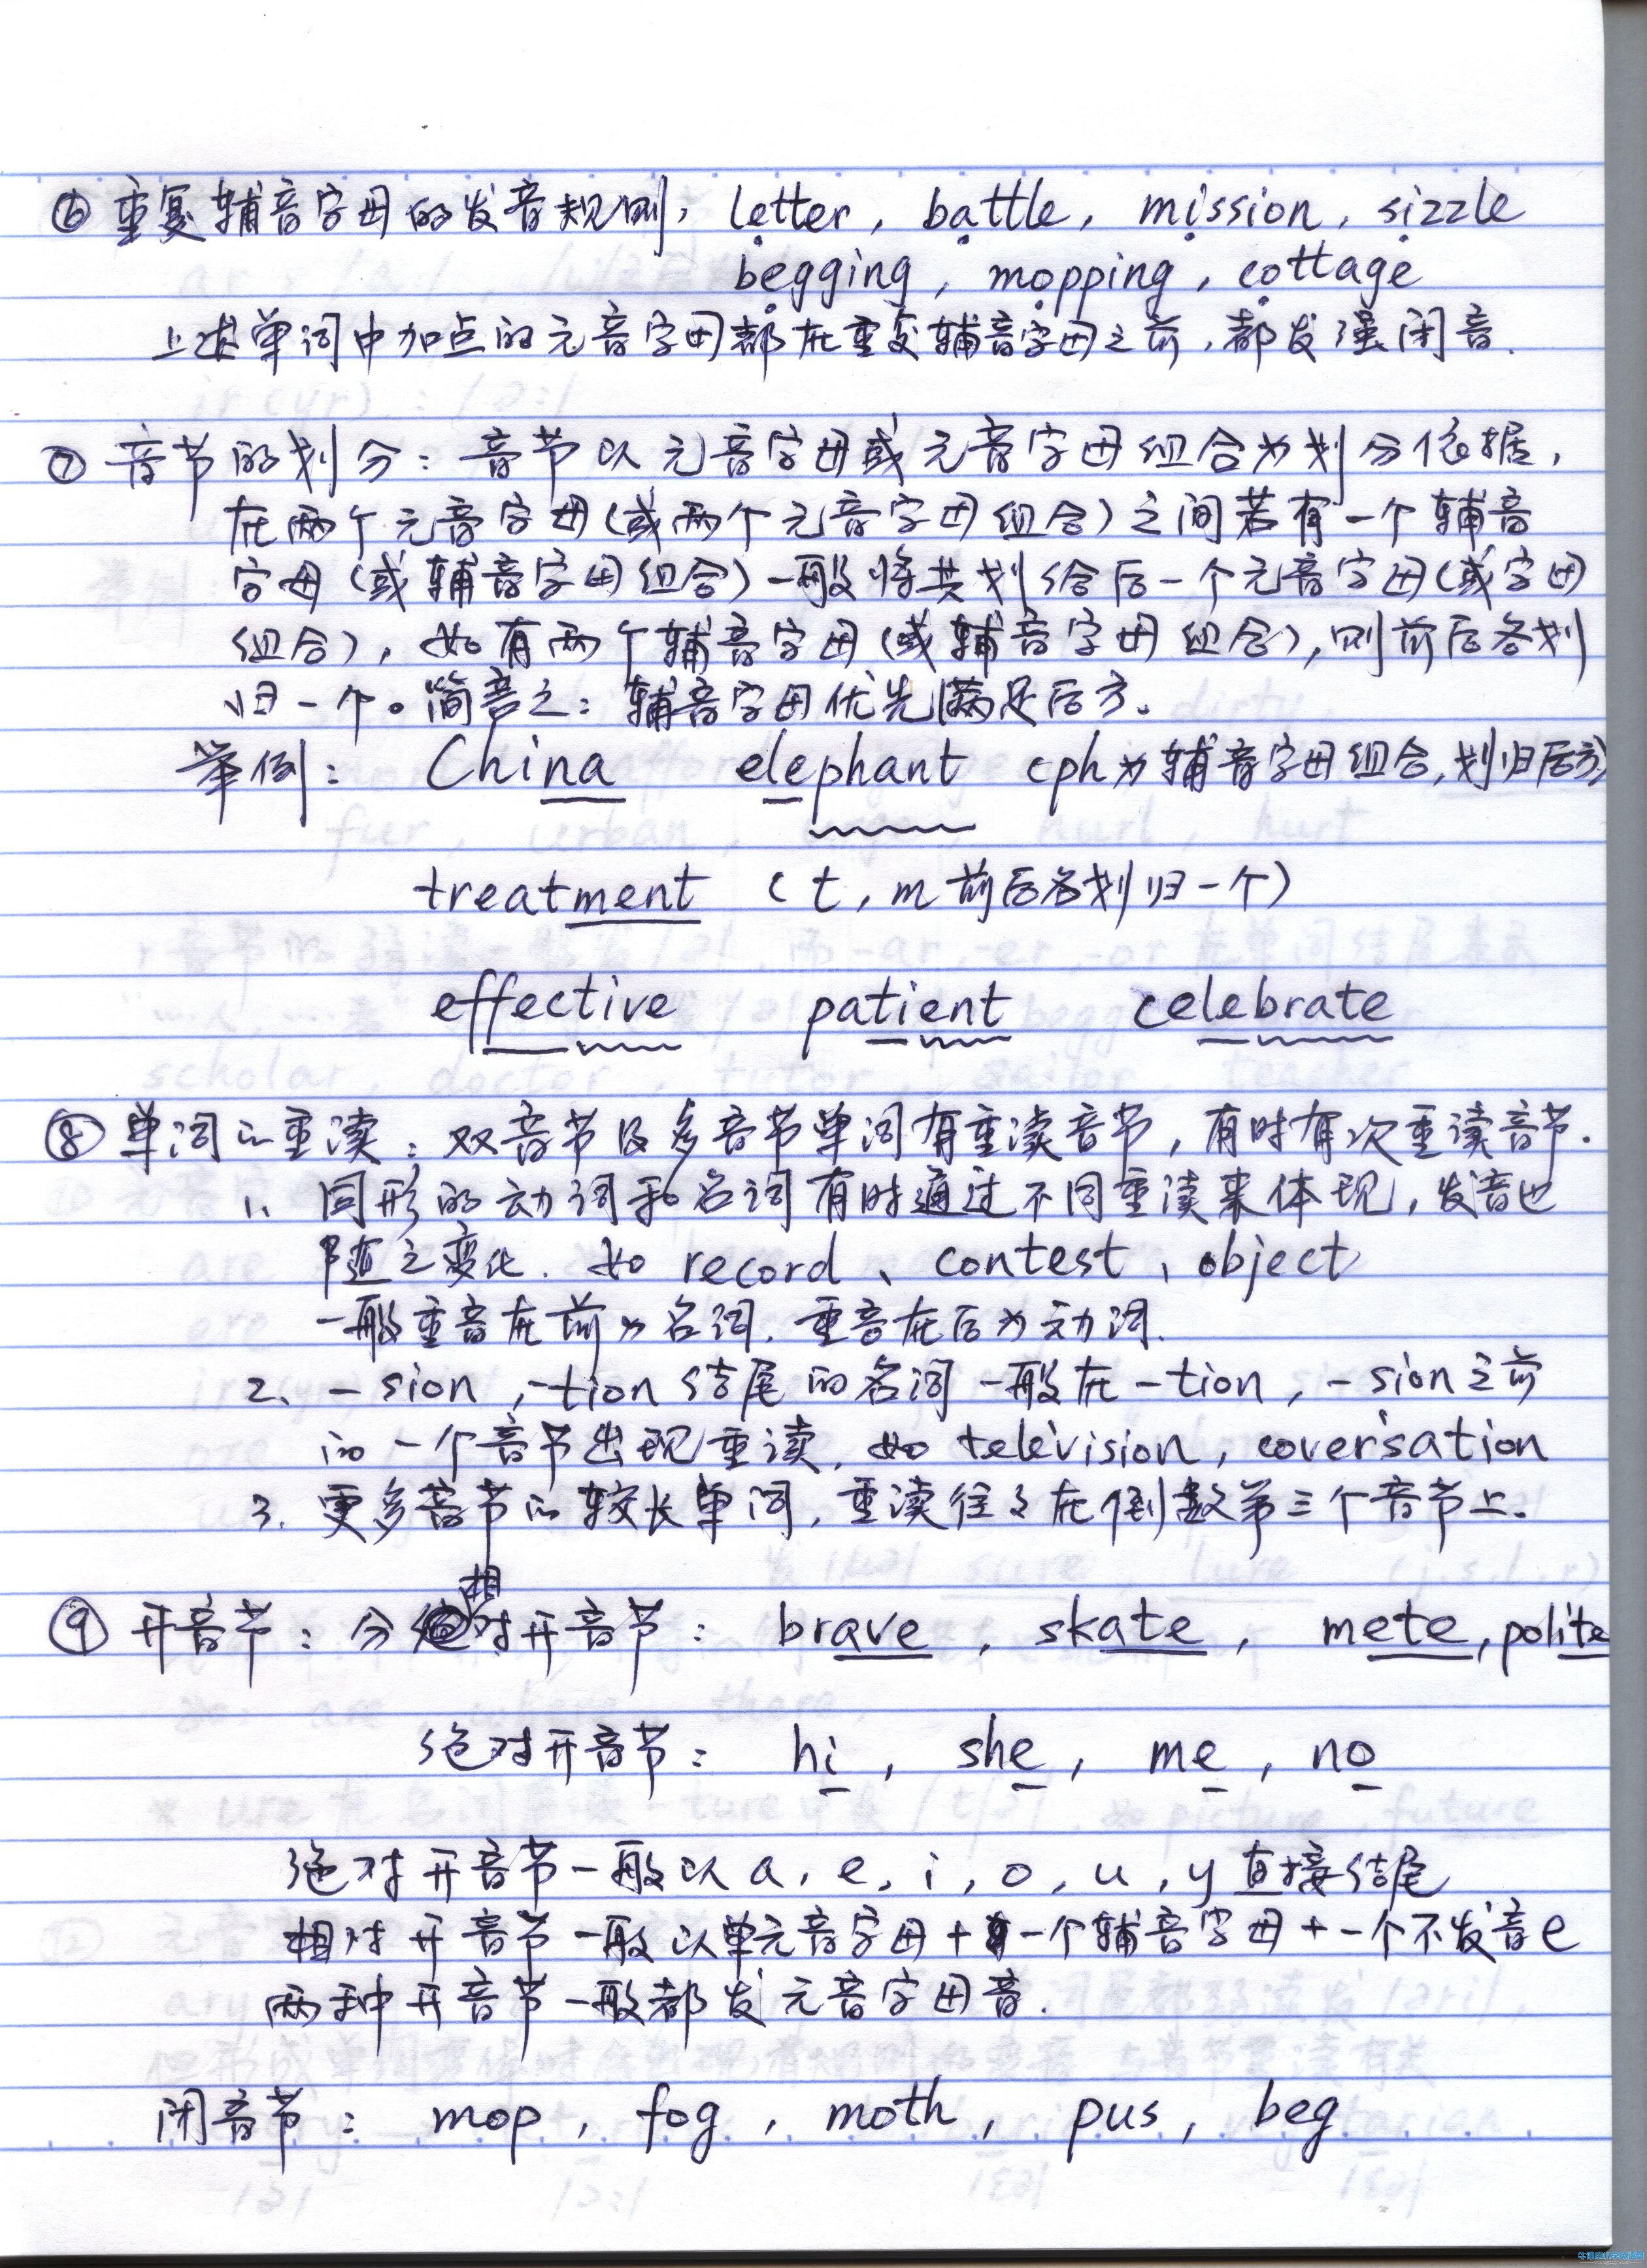 ⑥ 重复辅音字母的发音规则, letter, battle, mission, sizzle
begging, mopping, cottage
上述单词中加点的元音字母都在重复辅音字母之前,都发强闭音.
⑦ 音节的划分:音节以元音字母或元音字母组合为划分依据,
在两个元音字母(或两个元音字母组合)之间若有一个辅音
字母(或辅音字母组合)一般将其划给后一个元音字母(或字母
组合),如有两个辅音字母(或辅音字母组合),则前后各划
归一个。简言之:辅音字母优先满足后方.
举例: China elephant (ph为辅音字母组合,划归后方)
treatment (t, m 前后各划归一个)
effective patient celebrate
⑧ 单词的重读:双音节及多音节单词有重读音节,有时有次重读音节.
1、同形的动词和名词有时通过不同重读来体现,发音也
随之变化. 如 record、contest、object
一般重音在前为名词.重音在后为动词.
2、-sion,-tion结尾的名词一般在-tion,-sion之前
的一个音节出现重读.如 television, coversation
3. 更多音节的较长单词,重读往々在倒数第三个音节上.
⑨ 开音节:分相对开音节: brave, skate, mete, polite
绝对开音节: hi, she, me, no
绝对开音节一般以 a, e, i, o, u, y 直接结尾
相对开音节一般以单元音字母+一个辅音字母+一个不发音e
两种开音节一般都发元音字母音.
闭音节: mop, fog, moth, pus, beg